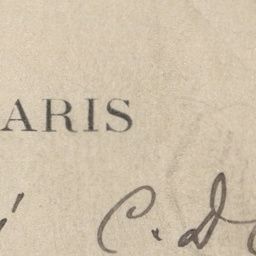 ARIS
C. D